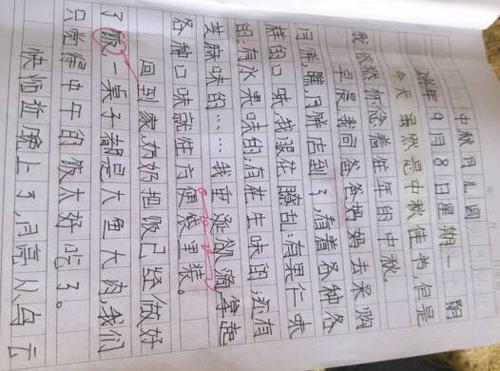 中秋月儿圆
年9月8日星期一 阴
今天虽然是中秋佳节，但是
我依然怀念着往年的中秋。
早晨，我同爸爸妈妈去采购
月饼，瞧，月饼店到了，看着各种各
样的口味，我眼花缭乱：有果仁味
的，有水果味的，有花生味的，还有
芝麻味的……我垂涎欲滴，拿起
各种口味就往方便袋里装。
回到家，奶奶把饭已经做好
了饭，一桌子都是大鱼大肉，我们
只觉得中午的饭太好吃了。
快临近晚上了，月亮从乌云